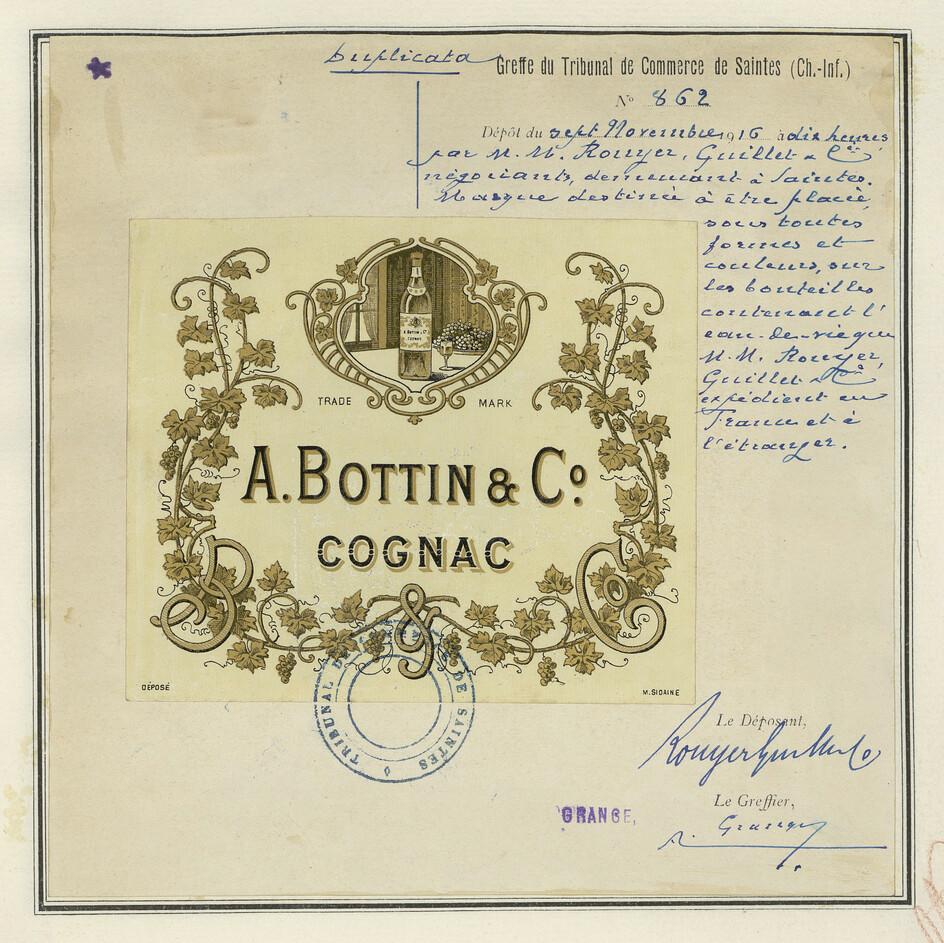 duplicata
Greffe du Tribunal de Commerce de Saintes (Ch.-Inf.)
N° 862
Dépôt du sept Novembre 1916 à dix heures,
par M. M. Rouyer, Guillet & Cie
négociants, demeurant à Saintes.
Marque destinée à être placée,
sous toutes
formes et
couleurs, sur
les bouteilles
contenant l'
eau-de-vie que
M. M. Rouyer,
Guillet & Cie
expédient en
France et à
l'étranger.
A. BOTTIN & Co
COGNAC
TRADE MARK
A. BOTTIN & Co
COGNAC
B & Co
DÉPOSÉ
M. SIDAINE
TRIBUNAL DE COMMERCE DE SAINTES
Le Déposant,
Rouyer Guillet & Co
Le Greffier,
GRANGE,
Grange